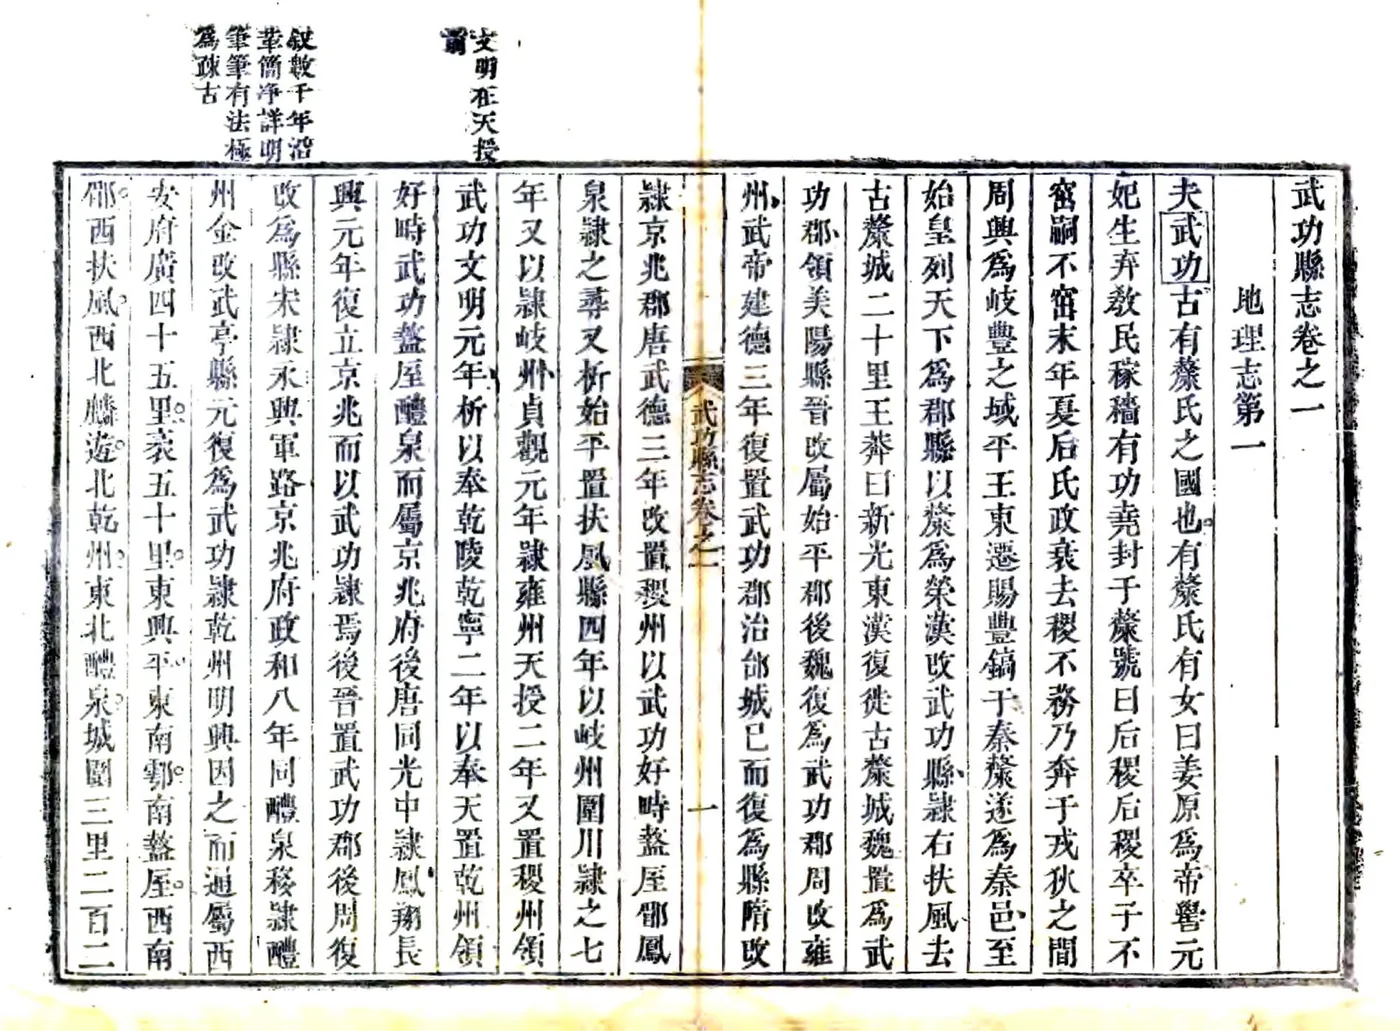 武功縣志卷之一
地理志第一
夫武功古有斄氏之國也有斄氏有女曰姜原爲帝嚳元
妃生弃教民稼穡有功堯封于斄號曰后稷后稷卒子不
窋嗣不窋末年夏后氏政衰去稷不務乃奔于戎狄之間
周興爲岐豐之域平王東遷賜豐鎬于秦斄遂爲秦邑至
始皇列天下爲郡縣以斄爲
漢改武功縣隷右扶風去
古斄城二十里王莽曰新光東漢復徙古斄城魏置爲武
功郡領美陽縣晉改屬始平郡後魏復爲武功郡周改雍
州武帝建德三年復置武功郡治邰城已而復爲縣隋改
武功縣志卷之一
一
隷京兆郡唐武德三年改置稷州以武功好畤盩厔郿鳳
泉隷之尋又析始平置扶風縣四年以岐州圍川隷之七
年又以隷岐州貞觀元年隷雍州天授二年又置稷州領
文明在天授
前
武功文明元年析以奉乾陵乾寧二年以奉天置乾州領
好畤武功盩厔醴泉而屬京兆府後唐同光中隷鳳翔長
興元年復立京兆而以武功隷焉後晉置武功郡後周復
敘數千年沿
革簡净詳明
筆筆有法極
爲疎古
改爲縣宋隷永興軍路京兆府政和八年同醴泉移隷醴
州金改武亭縣元復爲武功隷乾州明興因之而通屬西
安府廣四十五里袤五十里東興平東南鄠南盩厔西南
郿西扶風西北麟遊北乾州東北醴泉城圍三里二百二